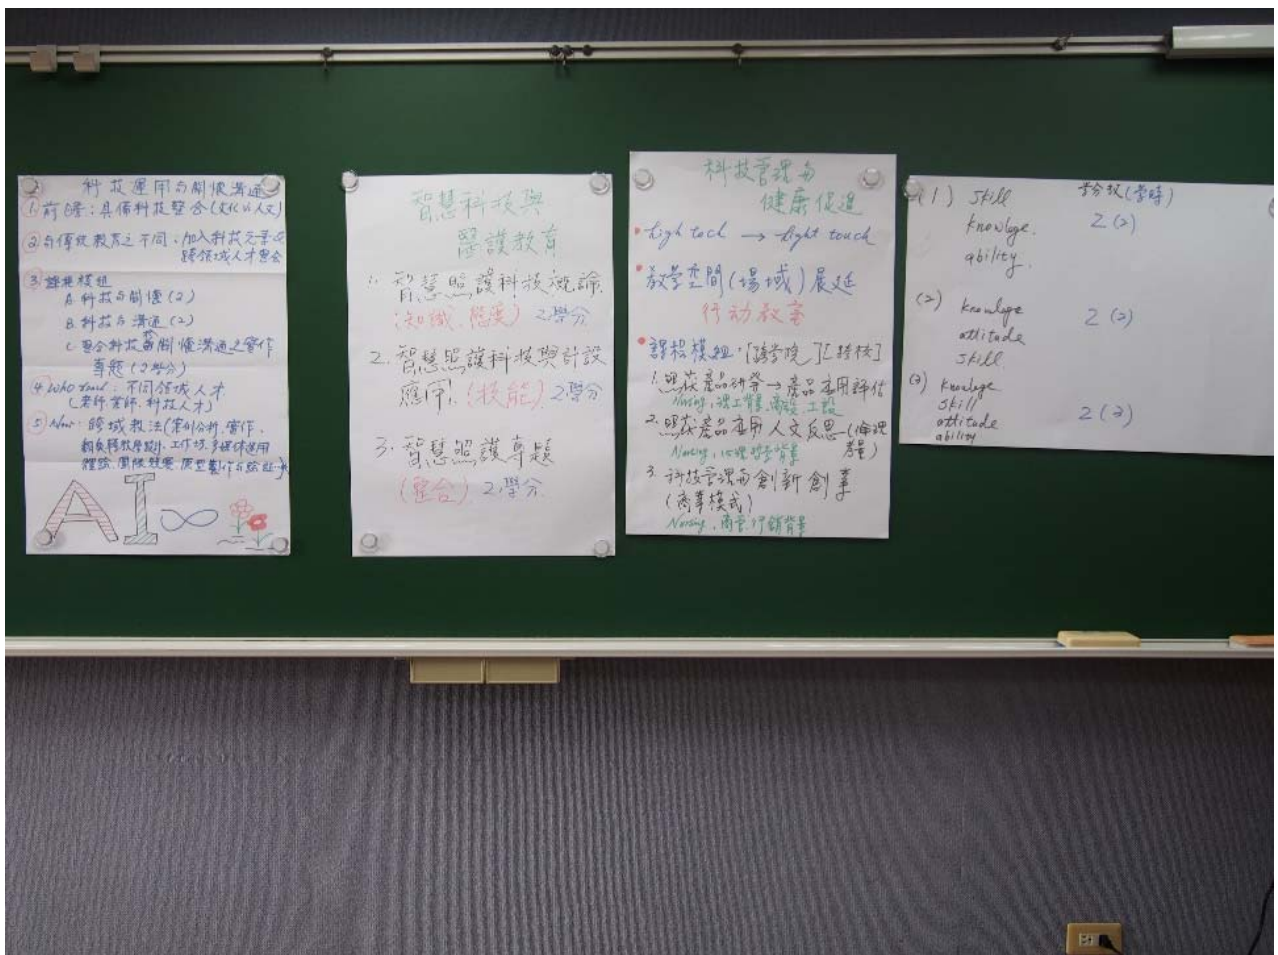 科技運用与關懷溝通
1. 前瞻：具備科技整合(文化&人文)
2. 与傳統教育之不同：加入科技元素&
跨領域人才整合
3. 課程模組
A. 科技与關懷(2)
B. 科技与溝通(2)
C. 整合科技与關懷溝通之實作
專題(2學分)
4. Who teach：不同領域人才
(老師.業師.科技人才)
5. How：跨域教法(案例分析.實作.
工作坊.多媒体運用
體驗.團隊競賽.原型製作与
AI∞
智慧科技與
醫護教育
1. 智慧照護科技概論
(知識、態度) 2學分
2. 智慧照護科技與計設
應用 (技能) 2學分
3. 智慧照護專題
(整合) 2學分
科技管理与
健康促進
high tech → light touch
教學空間(場域)展延
行动教室
課程模組：[跨學院][跨校]
1. 照護產品研發→產品應用評估
Nursing,理工背景.商設.工設
2. 照護產品應用人文反思(倫理
考量)
Nursing,心理學背景
3. 科技管理与創新創業
(商業模式)
Nursing,商管.行銷背景
(1) Skill 學分數(學時)
knowlege. 2(2)
ability.
(2) knowlege 2(2)
attitude
Skill
(3) knowlege
Skill
attitude 2(2)
ability